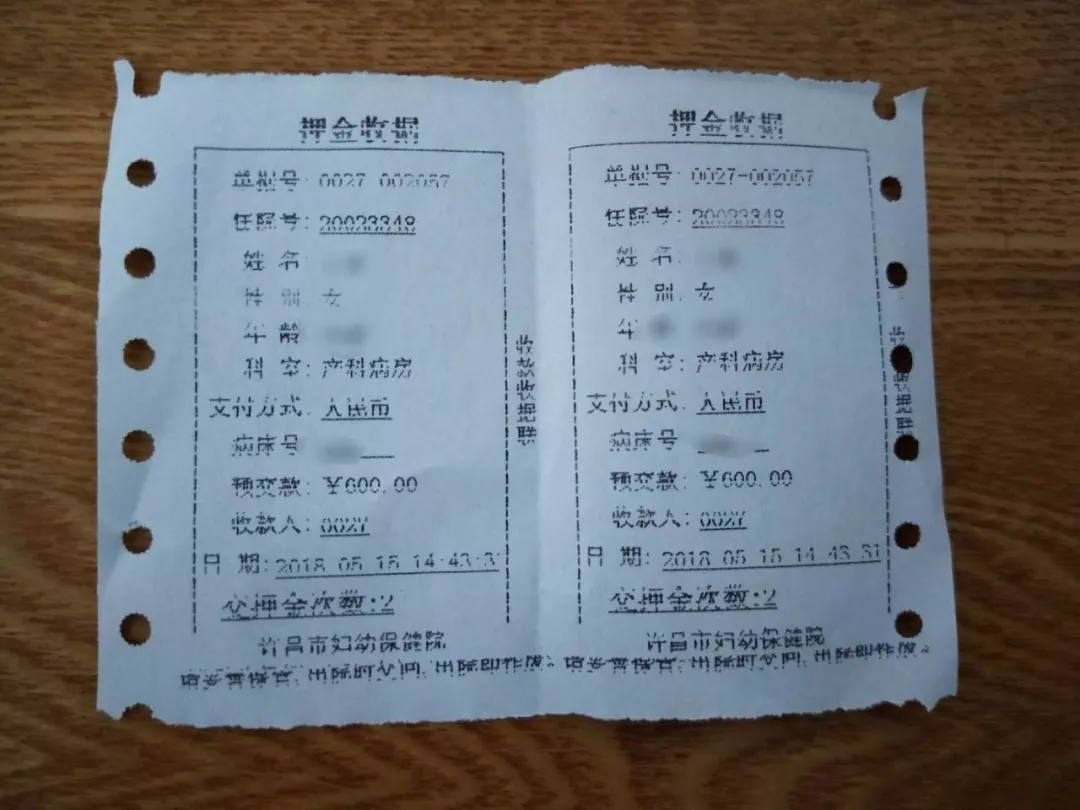 押金收据
单据号：0027-002057
住院号：20023348
姓 名
性 别 女
年 龄
科 室：产科病房
支付方式：人民币
病床号
预交款：￥600.00
收款人：0027
日 期：2018.05.15 14:43:31
交押金次数：2
许昌市妇幼保健院
收款收据联
押金收据
单据号：0027-002057
住院号：20023348
姓 名：
性 别：女
年
科 室：产科病房
支付方式：人民币
病床号
预交款：￥600.00
收款人：0027
日 期：2018.05.15 14:43:31
交押金次数：2
许昌市妇幼保健院